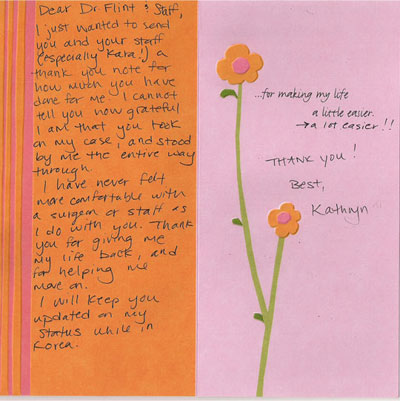 Dear Dr Flint & Staff,
I just wanted to send
you and your staff
(especially Kara!) a
thank you note for
how much you have
done for me. I cannot
tell you how grateful
I am that you took
on my case, and stood
by me the entire way
through.
I have never felt
more comfortable with
a surgeon or staff as
I do with you. Thank
you for giving me
my life back, and
for helping me
move on.
I will keep you
updated on my
status while in
Korea.
...for making my life
a little easier.
→a lot easier!!
THANK YOU!
Best,
Kathryn